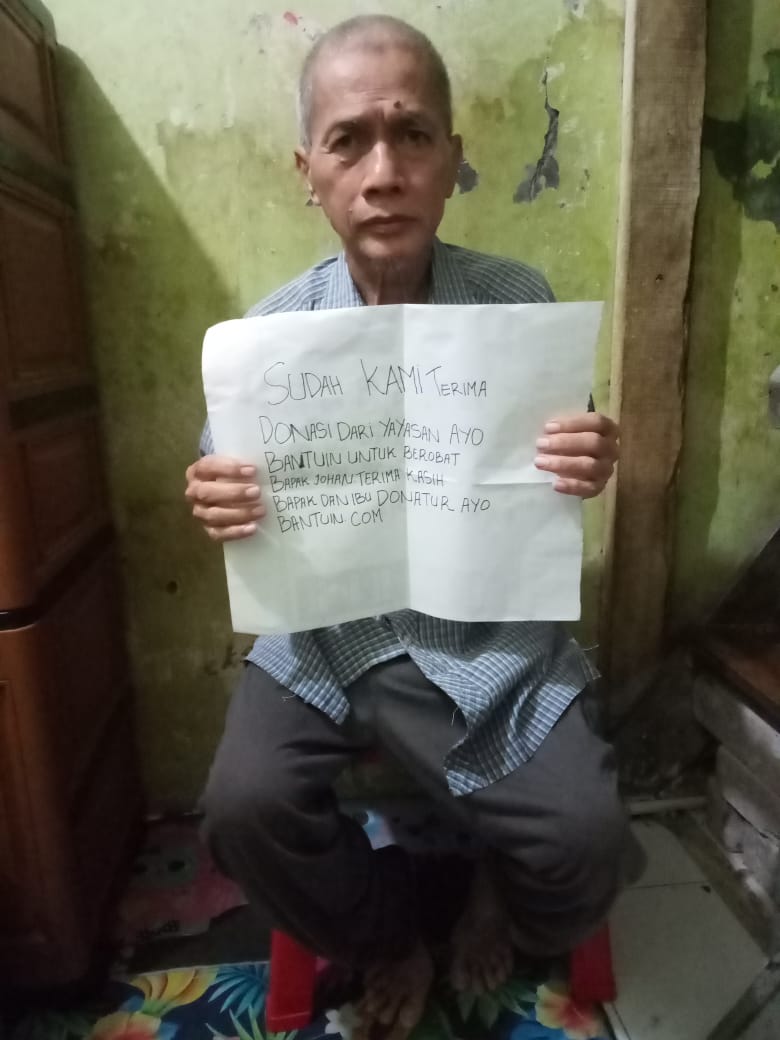 SUDAH KAMI TERIMA
DONASI DARI YAYASAN AYO
BANTUIN UNTUK BEROBAT
BAPAK JOHAN TERIMA KASIH
BAPAK DAN IBU DONATUR AYO
BANTUIN.COM